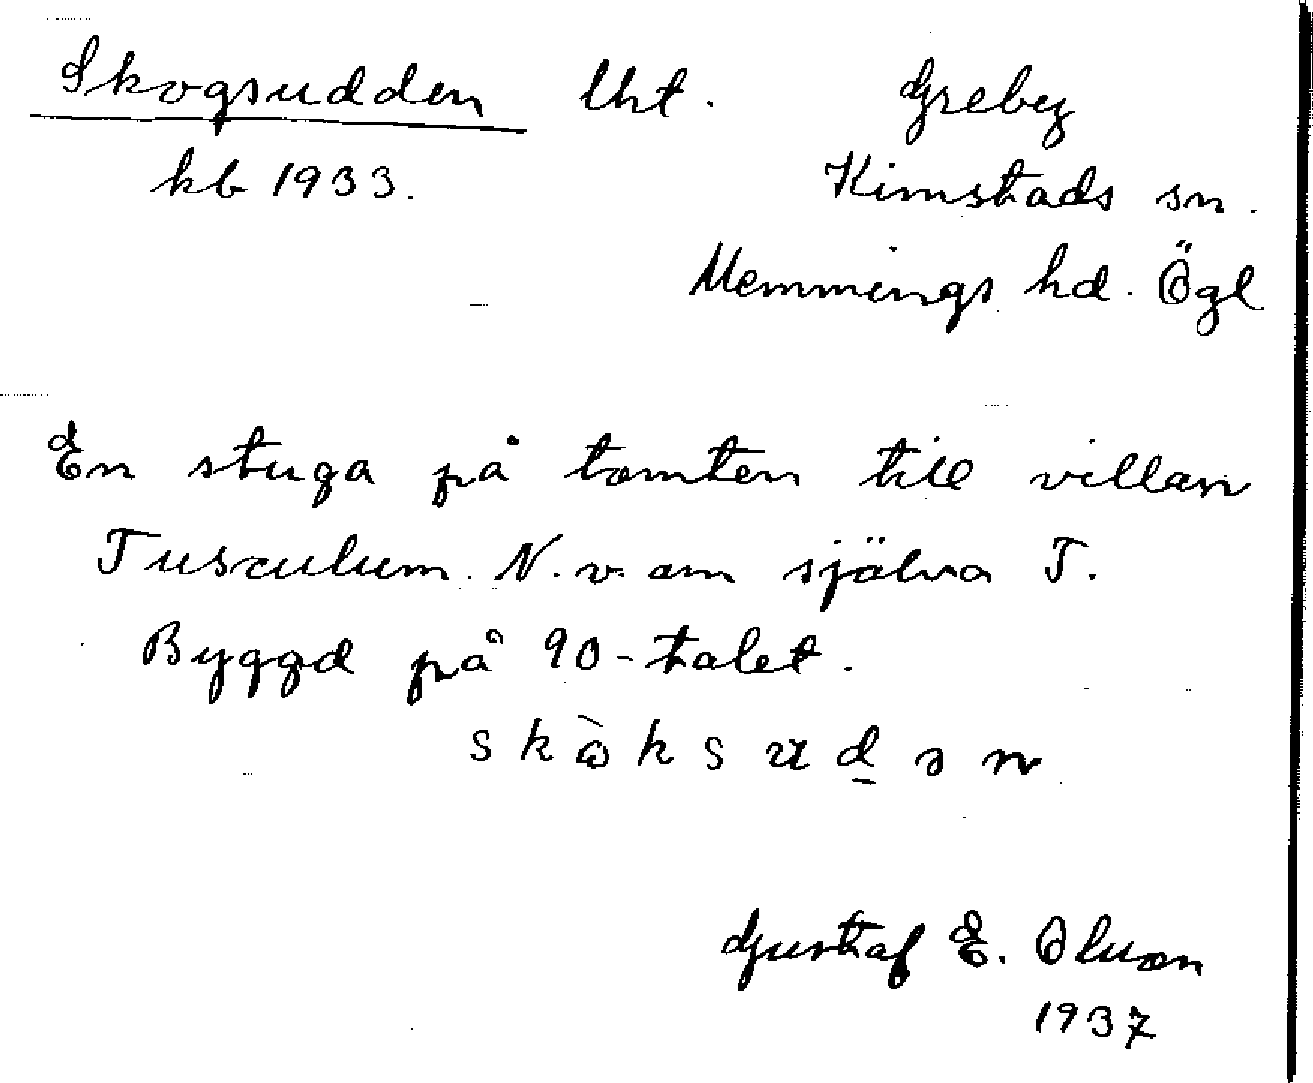 Skogsudden lht. Greby
kb 1933. Kimstads sn.
Memmings hd. Ögl
En stuga på tomten till villan
Tusculum. N.v. om själva T.
Byggd på 90-talet.
Gustaf E.
1937